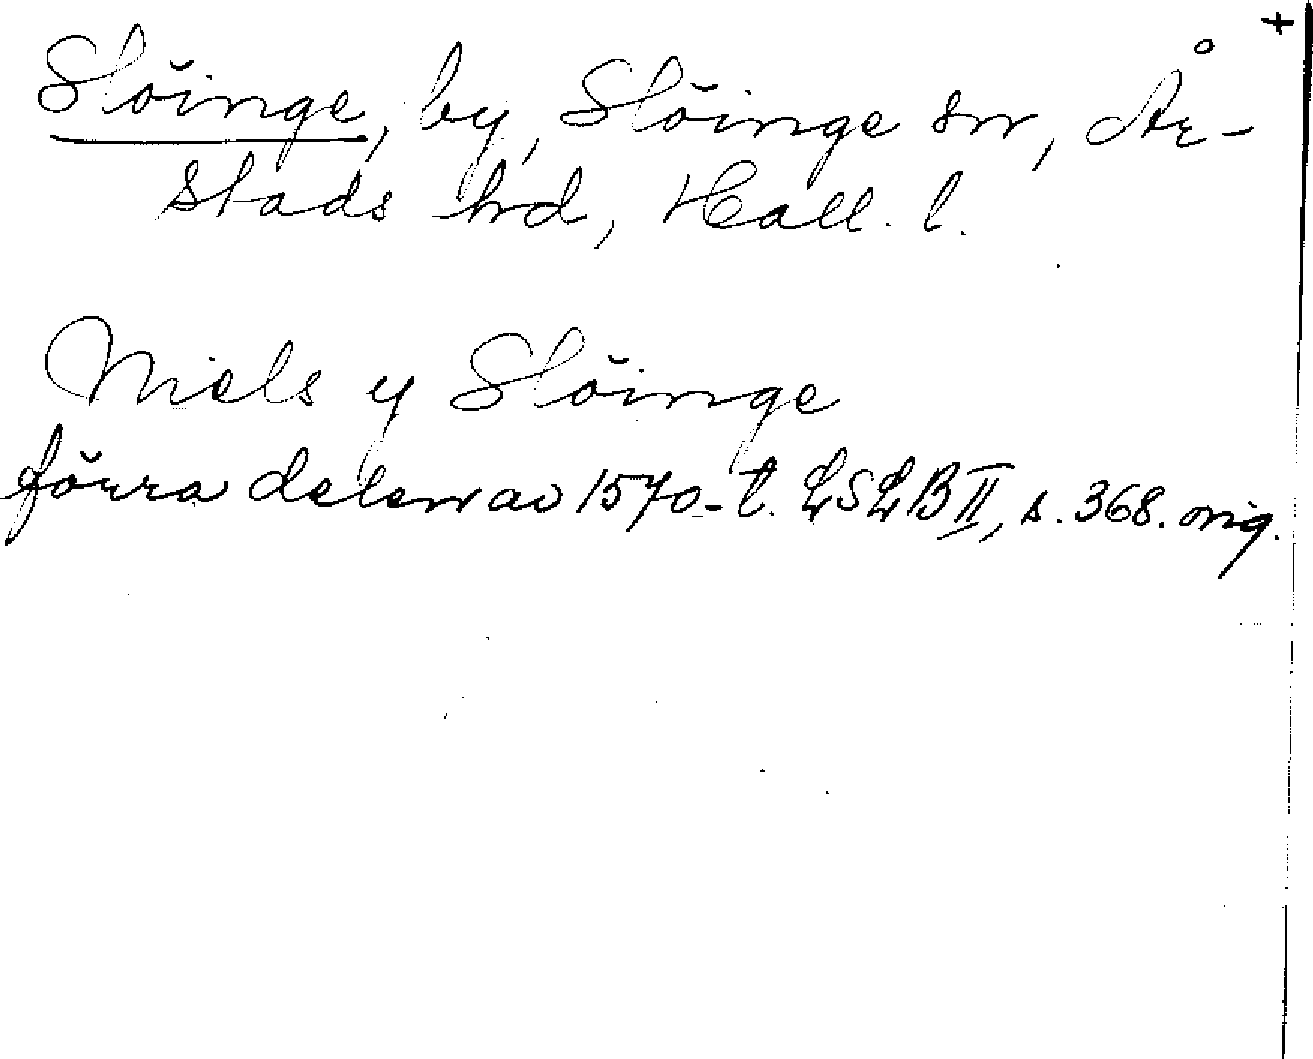 +
Slöinge, by, Slöinge sn, År-
stads hd, Hall. l.
Niels y Slöinge
förra delen av 1570-t. LSLB II, s. 368. orig.